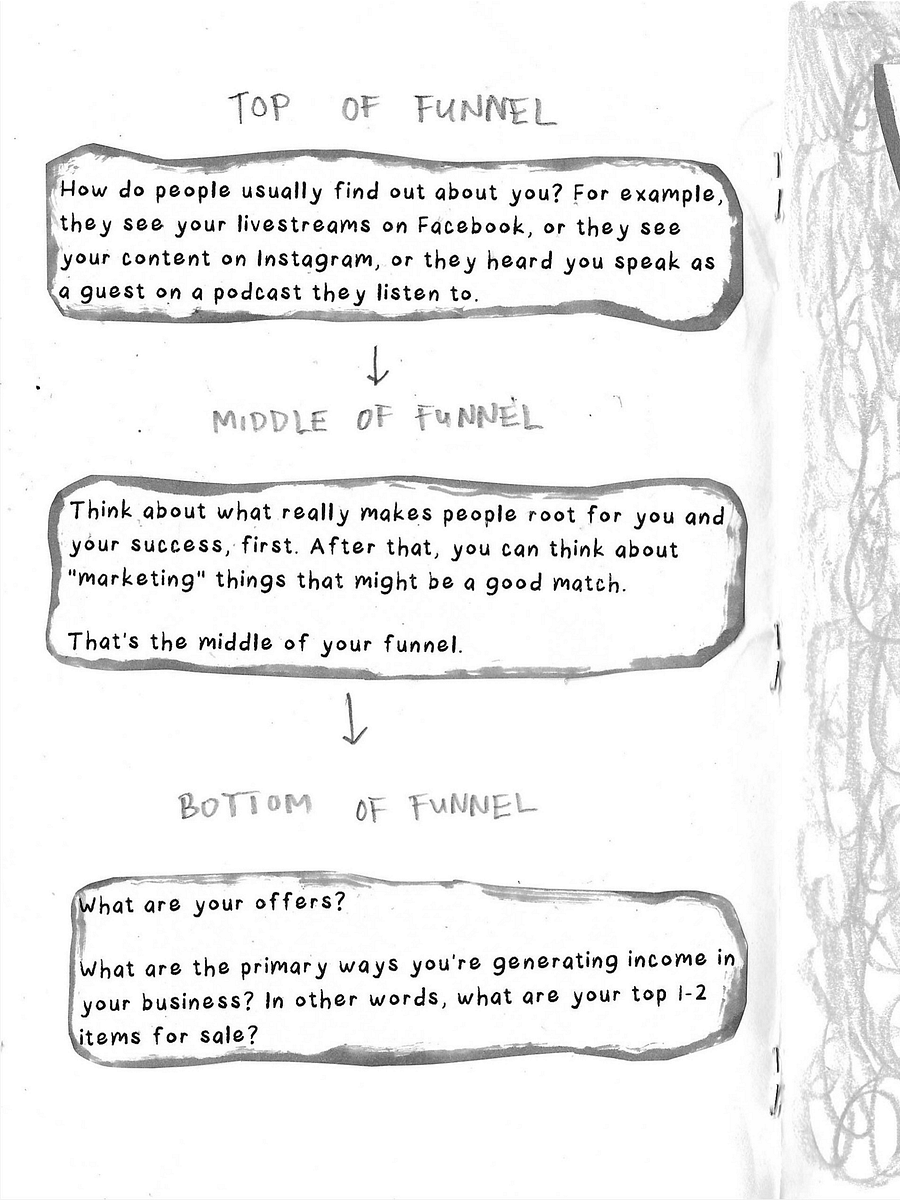 TOP OF FUNNEL
How do people usually find out about you? For example,
they see your livestreams on Facebook, or they see
your content on Instagram, or they heard you speak as
a guest on a podcast they listen to.
MIDDLE OF FUNNEL
Think about what really makes people root for you and
your success, first. After that, you can think about
"marketing" things that might be a good match.
That's the middle of your funnel.
BOTTOM OF FUNNEL
What are your offers?
What are the primary ways you're generating income in
your business? In other words, what are your top 1-2
items for sale?